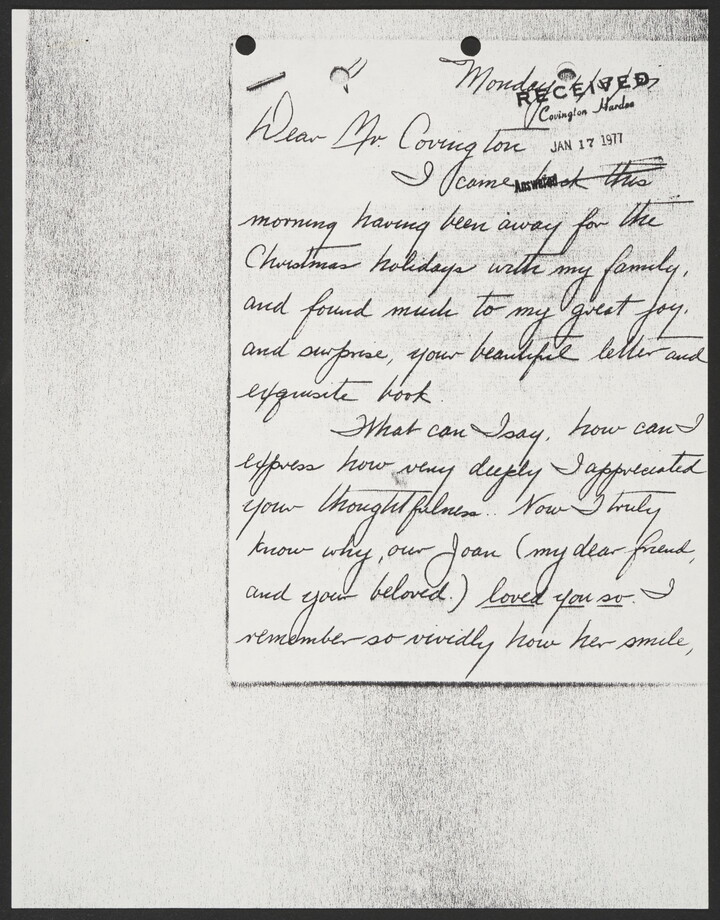 Monday
RECEIVED
Covington Hardee
JAN 17 1977
Dear Mr. Covington
Answered
I came back this
morning having been away for the
Christmas holidays with my family,
and found much to my great joy.
and surprise, your beautiful letter and
exquisite book.
What can I say, how can I
express how very deeply I appreciated
your thoughtfulness.. Now I truly
know why, our Joan (my dear friend,
and your beloved.) loved you so. I
remember so vividly how her smile,